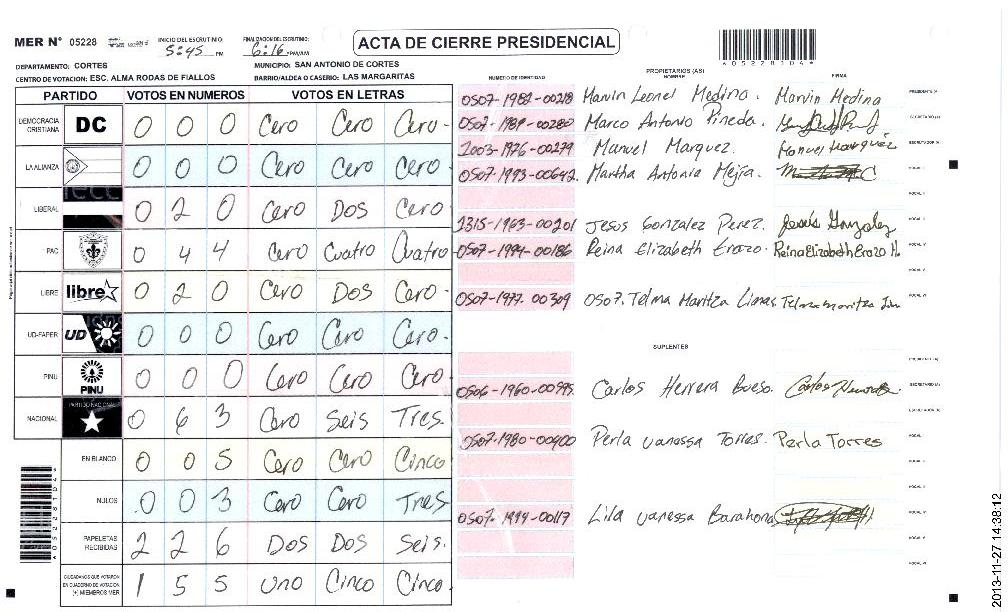 MER N° 05228
INICIO DEL ESCRUTINIO: 5:45 PM
FINALIZACION DEL ESCRUTINIO: 6:16 PM/AM
ACTA DE CIERRE PRESIDENCIAL
*05228104*
DEPARTAMENTO: CORTES
MUNICIPIO: SAN ANTONIO DE CORTES
CENTRO DE VOTACION: ESC. ALMA RODAS DE FIALLOS
BARRIO/ALDEA O CASERIO: LAS MARGARITAS
PARTIDO VOTOS EN NUMEROS VOTOS EN LETRAS
DEMOCRACIA CRISTIANA DC 0 0 0 Cero Cero Cero
LA ALIANZA 0 0 0 Cero Cero Cero
LIBERAL 0 2 0 Cero Dos Cero
PAC 0 4 4 Cero Cuatro Cuatro
LIBRE libre 0 2 0 Cero Dos Cero
UD-FAPER UD 0 0 0 Cero Cero Cero
PINU PINU 0 0 0 Cero Cero Cero
NACIONAL PARTIDO NACIONAL 0 6 3 Cero Seis Tres
EN BLANCO 0 0 5 Cero Cero Cinco
NULOS 0 0 3 Cero Cero Tres
PAPELETAS RECIBIDAS 2 2 6 Dos Dos Seis
CIUDADANOS QUE VOTARON EN CUADERNO DE VOTACION (+) MIEMBROS MER 1 5 5 Uno Cinco Cinco
*05228104*
NUMERO DE IDENTIDAD PROPIETARIOS (AS) NOMBRE FIRMA
0507-1982-00218 Marvin Leonel Medina. Marvin Medina
0507-1989-00280 Marco Antonio Pineda.
2003-1976-00279 Manuel Marquez. Manuel Marquez
0507-1993-00642. Martha Antonia Mejia.
1315-1963-00201 Jesus Gonzalez Perez. Jesus Gonzalez
0507-1994-00186 Reina Elizabeth Erazo. Reina Elizabeth Erazo H.
0507-1977-00309 0507. Telma Maritza Limas Telma maritza
SUPLENTES
0506-1960-00995 Carlos Herrera Bueso. Carlos Herrera
0507-1980-00400 Perla Vanessa Torres. Perla Torres
0507-1994-00117 Lila Vanessa Barahona
2013-11-27 14:38:12